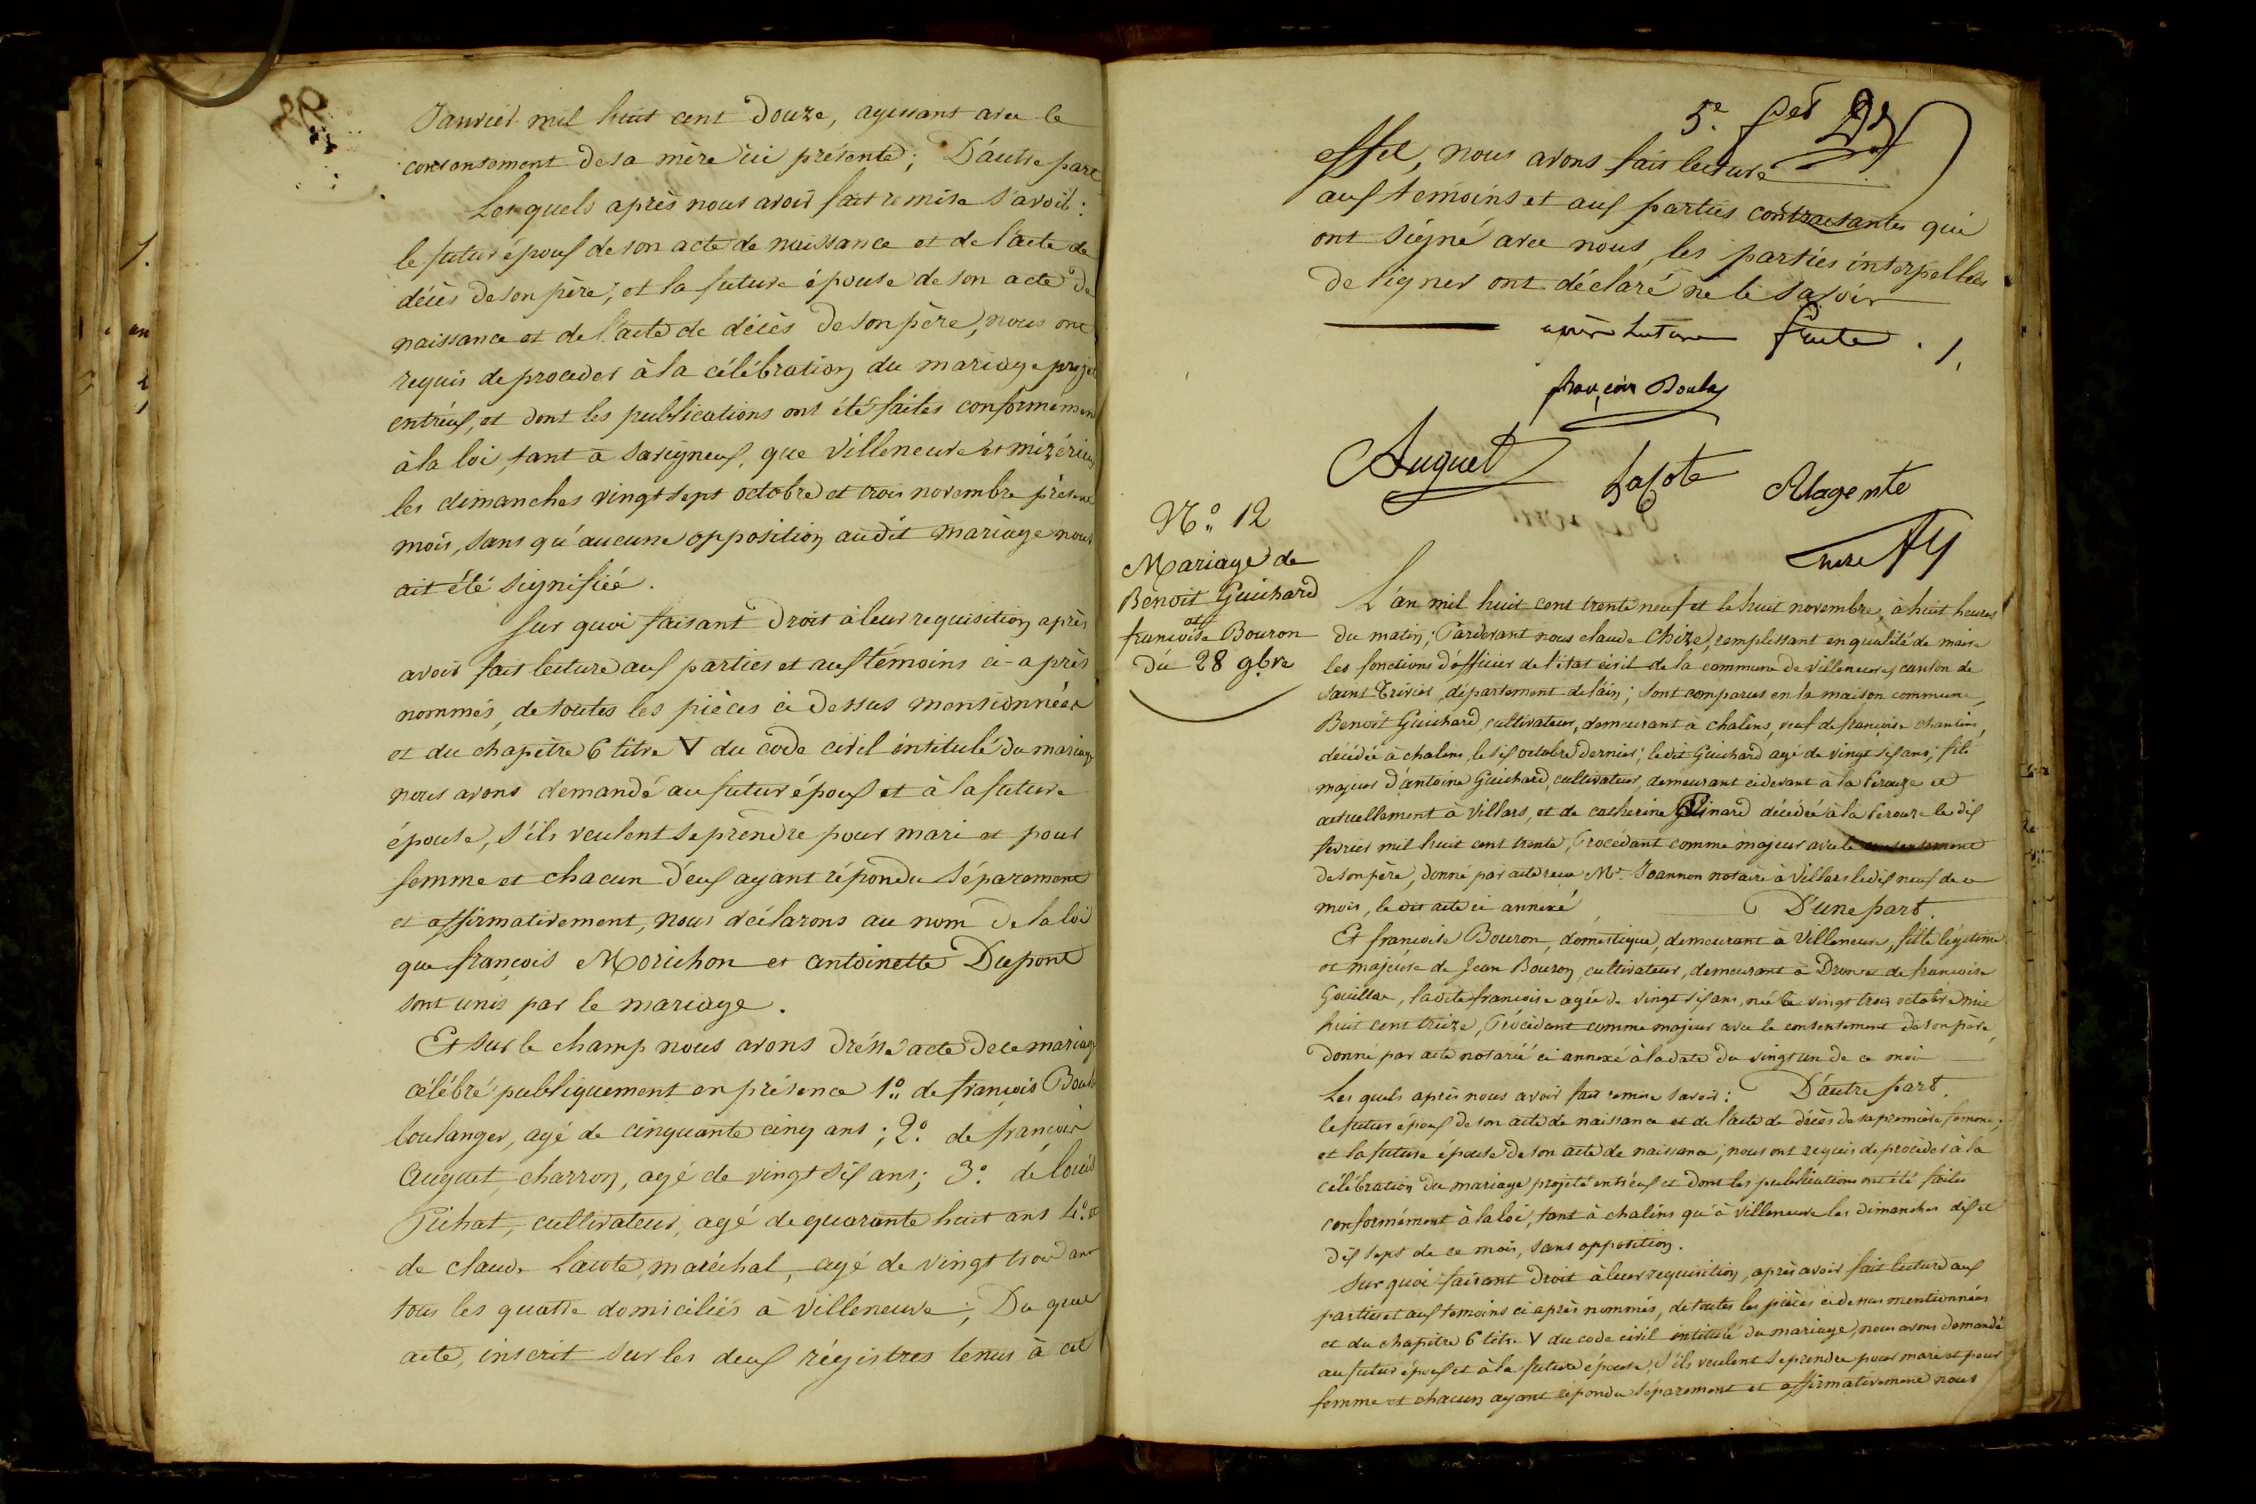 Janvier mil huit cent Douze, agissant avec le
consentement de sa mère ici présente; D'autre part
Lesquels après nous avoir fait remise savoir:
le futur époux de son acte de naissance et de l'acte de
décès de son père, et la future épouse de son acte de
naissance et de l'acte de décès de son père, nous ont
requis de proceder à la célébration du mariage projeté
entr'eux, et dont les publications ont été faites conformément
à la loi, tant à Savigneux, que Villeneuve et mizérieux
les dimanches vingt sept octobre et trois novembre présent
mois, sans qu'aucune opposition audit mariage nous
ait été signifiée.
Sur quoi faisant Droit à leur requisition après
avoir fait lecture aux parties et aux témoins ci-après
nommés, de toutes les pièces ci dessus mentionnées
et du chapitre 6 titre V du code civil intitulé du mariage
nous avons demandé au futur époux et à la future
épouse, s'ils veulent se prendre pour mari et pour
femme et chacun d'eux ayant répondu séparement
et affirmativement, nous déclarons au nom de la loi
que françois Morichon et antoinette Dupont
sont unis par le mariage.
Et sur le champ nous avons dréssé acte de ce mariage
célébré publiquement en présence 1.° de françois
boulanger, agé de cinquante cinq ans; 2.° de françois
Auguet, charron, agé de vingt six ans; 3.° de louis
Pichat, cultivateur, agé de quarante huit ans 4.° et
de claude Lacote, maréchal, agé de vingt trois ans
tous les quatre domiciliés à Villeneuve; Du quel
acte, inscrit sur les deux régistres tenus à cet
5.e
effet, nous avons fait lecture
aux temoins et aux parties contractantes qui
ont signé avec nous, les parties interpellées
de signer ont déclaré ne le savoir
après Lecture faite
françois
Auguet Lacote
N.° 12
Mariage de
Benoit Guichard
et
francoise Bouron
du 28 9bre
L'an mil huit cent trente neuf et le huit novembre, à huit heures
du matin; Pardevant nous claude Chize, remplissant en qualité de maire
les fonctions d'officier de l'état civil de la commune de Villeneuve, canton de
Saint Trivier, département de l'ain; sont comparus en la maison commune,
Benoit Guichard, cultivateur, demeurant à chaleins, veuf de françoise
décédée à chaleins, le six octobre dernier; ledit Guichard agé de vingt six ans; fils
majeur d'antoine Guichard, cultivateur, demeurant cidevant à la Perouze et
actuellement à Villars, et de catherine décédée à la Perouze le dix
fevrier mil huit cent trente, Procédant comme majeur avec le consentement
de son père, donné par acte reçu M.e Joannon notaire à Villars le dix neuf de ce
mois, le dit acte ci annexé D'une part.
Et francoise Bouron, domestique, demeurant à Villeneuve, fille légitime
et majeure de Jean Bouron, cultivateur, demeurant à et de francoise
ladite francoise agée de vingt six ans, née le vingt trois octobre mil
huit cent treize, Procédant comme majeur avec le consentement de son père,
donné par acte notarié ci annexé à la date du vingt un de ce mois
Les quels après nous avoir fait remise savoir: D'autre part.
le futur époux de son acte de naissance et de l'acte de décès de sa première femme;
et la future épouse de son acte de naissance, nous ont requis de procéder à la
célébration du mariage projeté entr'eux et dont les publications ont été faites
conformément à la loi, tant à chaleins qu'à Villeneuve les dimanches dix et
dix sept de ce mois, sans opposition.
Sur quoi faisant Droit à leur requisition, après avoir fait lecture aux
parties et aux temoins ci après nommés, de toutes les pièces ci dessus mentionnées
et du chapitre 6 titre V du code civil intitulé du mariage, nous avons demandé
au futur époux et à la future épouse, s'ils veulent se prendre pour mari et pour
femme et chacun ayant répondu séparement et affirmativement nous